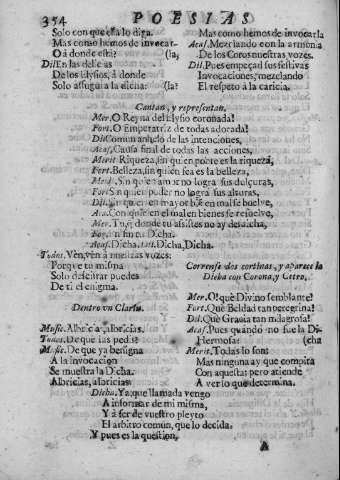 354 POESIAS
Solo con que ella lo diga.
Mas como hemos de invocar-
A donde está? (la,
Dis. En las delicias
De los Elysios, á donde
Solo assegura la dicha: (la?
Mas como hemos de invocarla
Acas. Mezclando con la armonia
De los Coros nuestras vozes.
Dil. Pues empeçad sus festivas
Invocaciones, mezclando
El respeto á la caricia.
Cantan, y representan.
Mer. O Reyna del Elysio coronada!
Fort. O Emperatriz de todas adorada!
Dil. Comun anhelo de las intenciones,
Acas. Causa final de todas las acciones,
Merit. Riqueza, sin quien pobre es la riqueza,
Fort. Belleza, sin quien fea es la belleza,
Merit. Sin quien amor no logra sus dulçuras,
Fort. Sin quien poder no logra sus alturas,
Dil. Sin quien en mayor bien en mal se buelve,
Aca. Con quien en el mal en bienes se resuelve,
Mer. Tu, q donde tu assistes no ay desdicha,
Fort. En fin tu Dicha.
Acas. Dicha. Dil. Dicha, Dicha.
Todos. Ven, vén à nuestras vozes:
Porque tu misma
Solo descifrar puedes
De ti el enigma.
Dentro un Clarin.
Music. Albricias, albricias.
Todos. De que las pedis?
Music. De que ya benigna
A la invocacion
Se muestra la Dicha.
Albricias, albricias
Correnſe dos cortinas, y aparece la
Dicha con Corona, y Cetro,
Mer. O! què Divino semblante!
Fort. Que Beldad tan peregrina!
Dil. Què Gracia tan milagrosa!
Acas. Pues quando no fue la Di-
Hermosa? (cha
Merit. Todas lo son;
Mas ninguna ay que compita
Con aquesta: pero atiende
A ver lo que determina.
Dicha. Ya que llamada vengo
A informar de mi misma,
Y à ser de vuestro pleyto
El arbitro comun, que lo decida.
Y pues es la question,
A